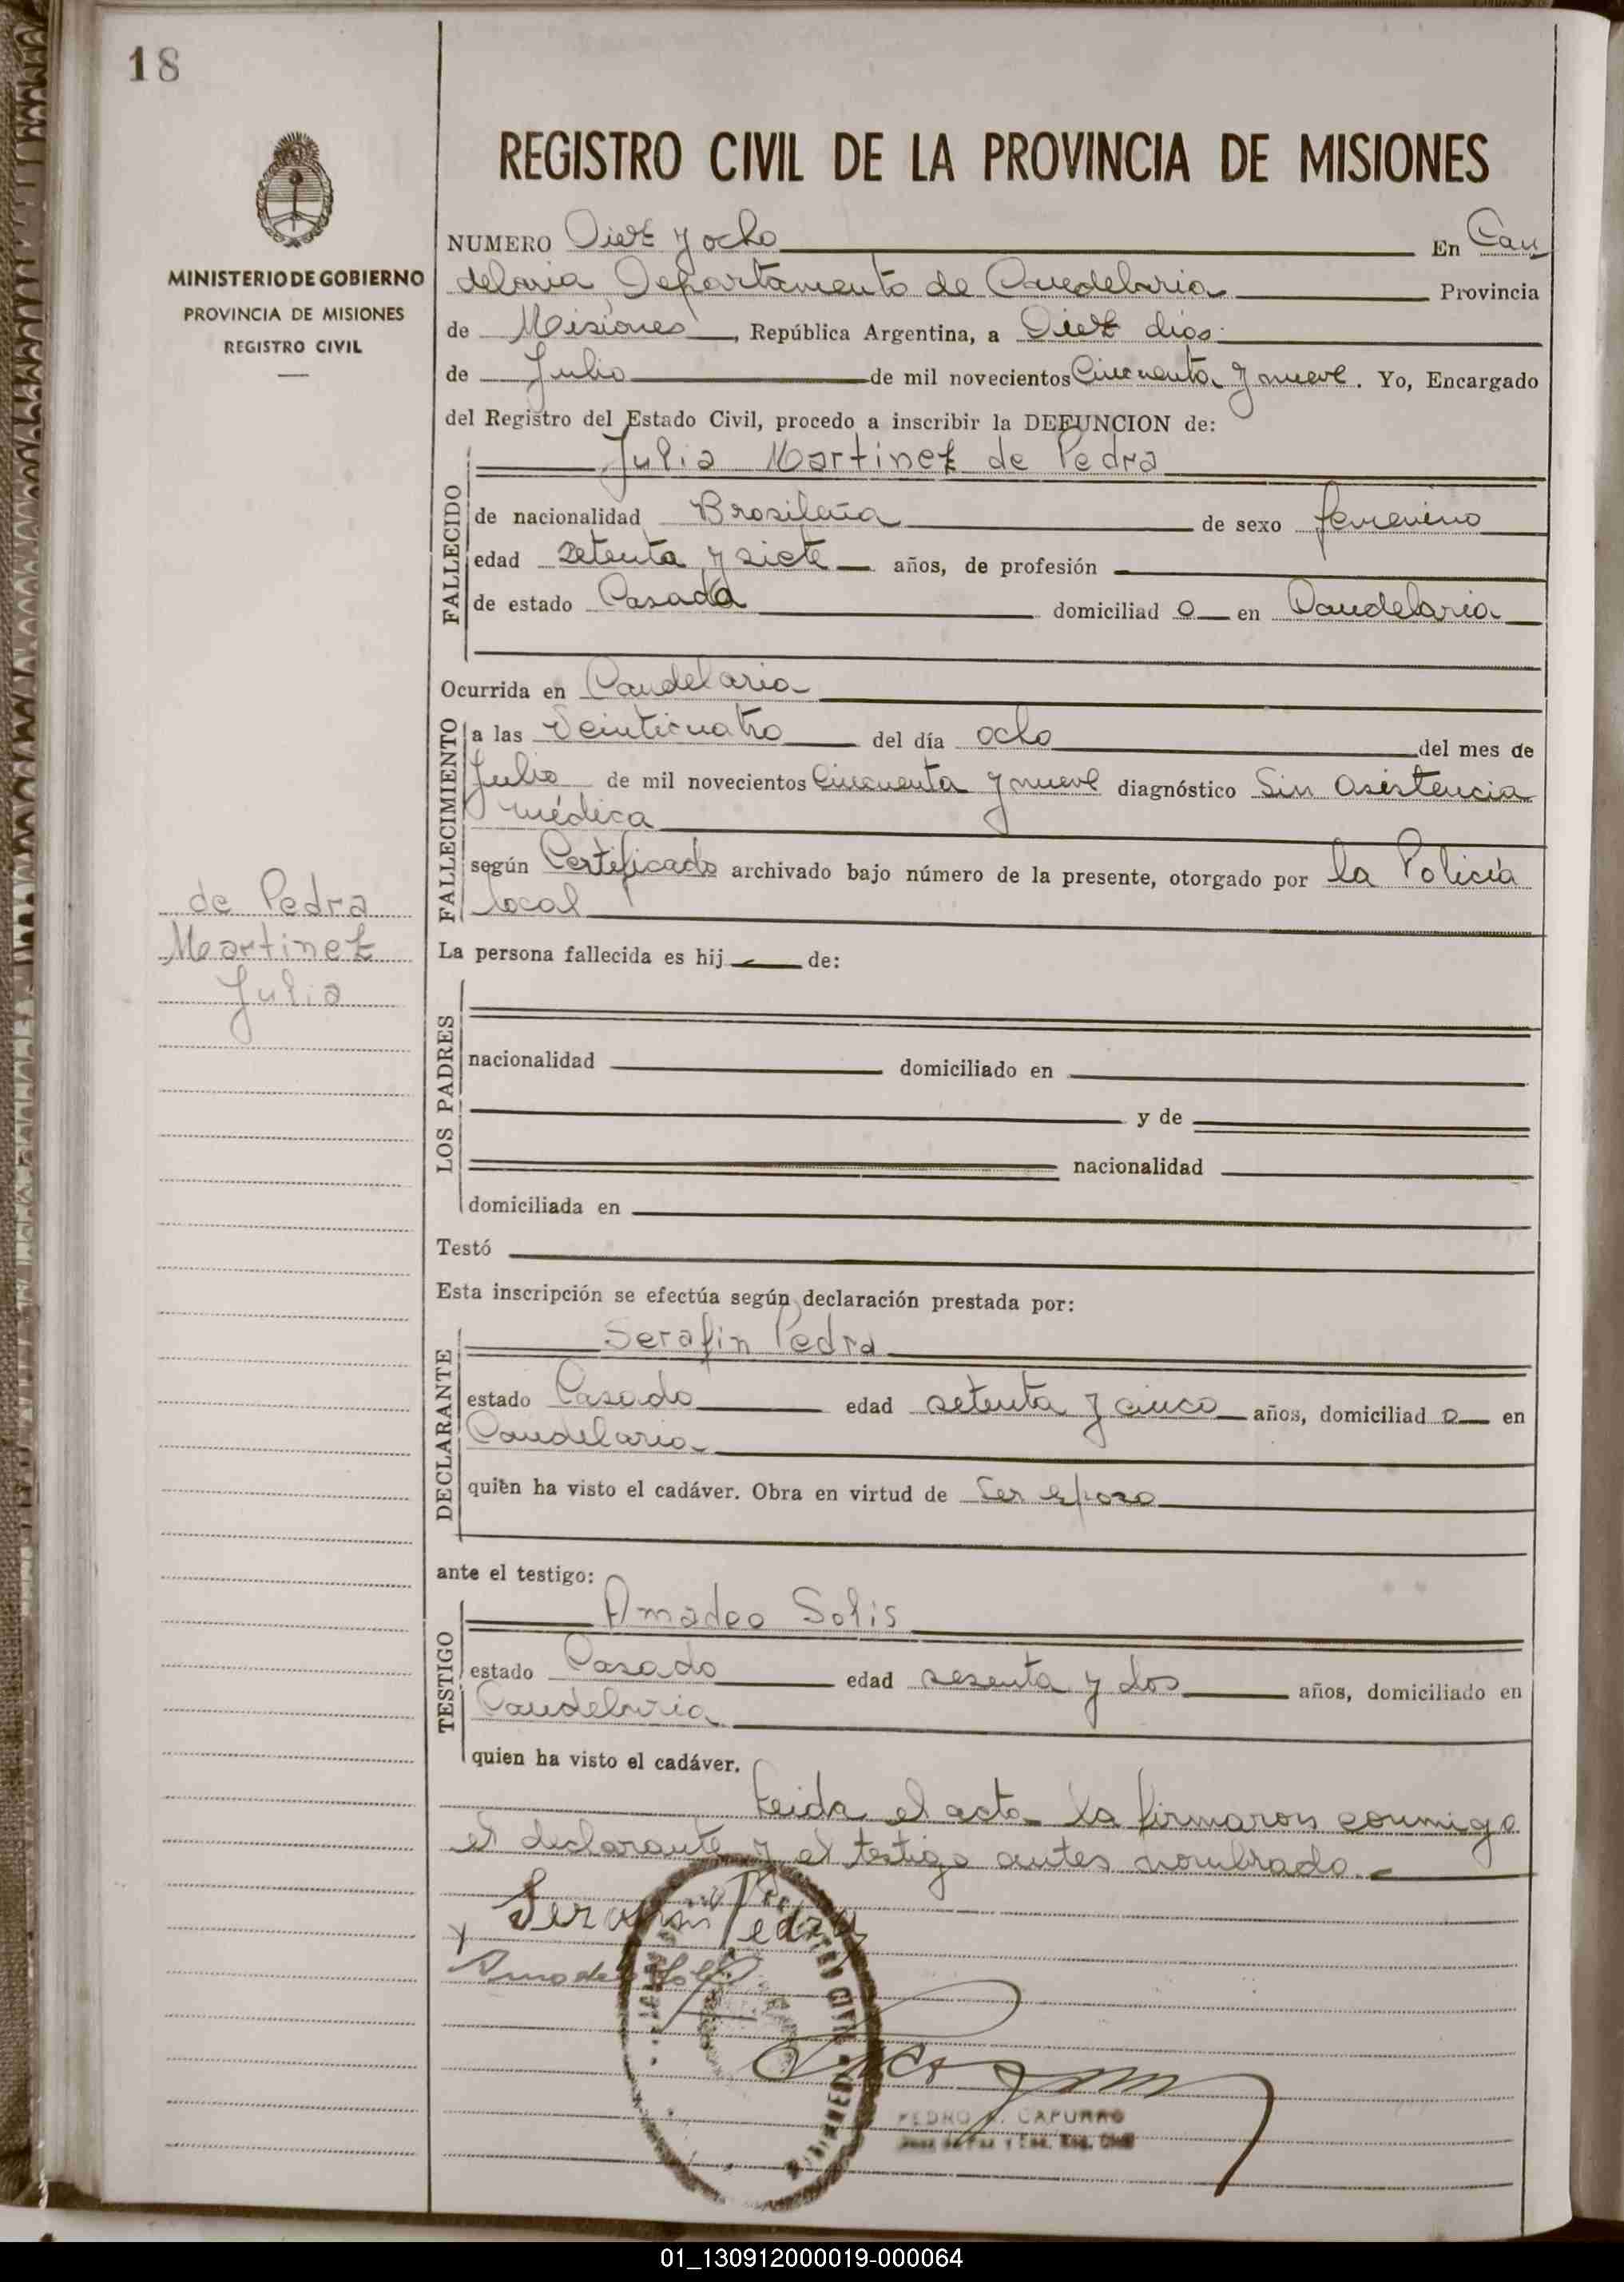 18
MINISTERIO DE GOBIERNO
PROVINCIA DE MISIONES
REGISTRO CIVIL
REGISTRO CIVIL DE LA PROVINCIA DE MISIONES
NUMERO Diez y ocho En Can
delaria Departamento de Candelaria Provincia
de Misiones, República Argentina, a Diez dias
de Julio de mil novecientos Cincuenta y nueve. Yo, Encargado
del Registro del Estado Civil, procedo a inscribir la DEFUNCION de:
Julia Martinez de Pedra
FALLECIDO
de nacionalidad Brasileña de sexo femenino
edad setenta y siete años, de profesión
de estado Casada domiciliad a en Candelaria
Ocurrida en Candelaria
FALLECIMIENTO
a las Veinticuatro del día ocho del mes de
Julio de mil novecientos Cincuenta y nueve diagnóstico Sin asistencia
médica
según Certificado archivado bajo número de la presente, otorgado por la Policía
local
de Pedra
Martinez
Julia
La persona fallecida es hij de:
LOS PADRES
nacionalidad domiciliado en
y de
nacionalidad
domiciliada en
Testó
Esta inscripción se efectúa según declaración prestada por:
Serafin Pedra
DECLARANTE
estado Casado edad setenta y cinco años, domiciliad o en
Candelaria
quién ha visto el cadáver. Obra en virtud de Ser esposo
ante el testigo:
Amadeo Solis
TESTIGO
estado Casado edad sesenta y dos años, domiciliado en
Candelaria
quien ha visto el cadáver.
Leida el acta la firmaron conmigo
el declarante y el testigo antes nombrado.
Serafin Pedra
Amadeo Solis
PEDRO CAPURRO
Juez de Paz y Enc. Reg. Civil
01_130912000019-000064